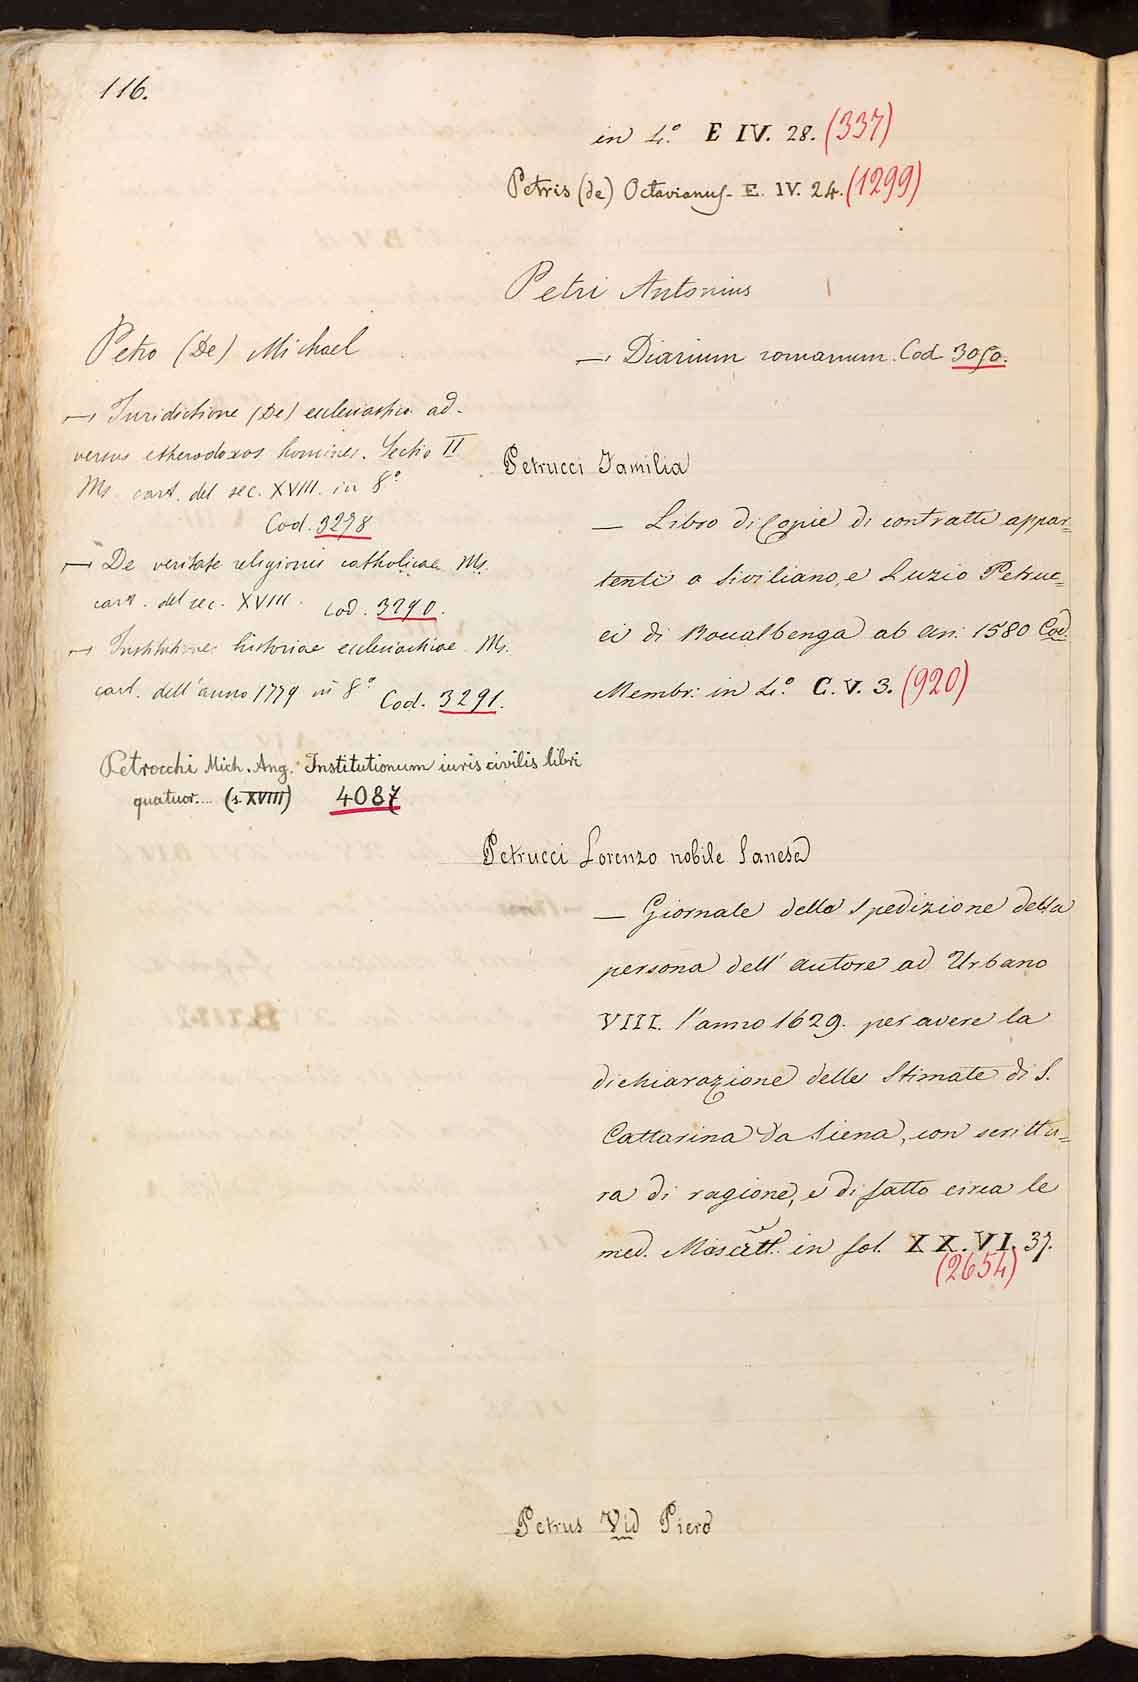 116.
in 4.° E IV. 28. (337)
Petris (de) Octavianus - E. IV. 24. (1299)
Petri Antonius
— Diarium romanum. Cod 3050.
Petro (De) Michael
— Iuridictione (De) ecclesiastica ad-
versus etherodoxos homines. Sectio II
Ms. cart. del sec. XVIII. in 8°
Cod. 3278
— De veritate religionis catholicae Ms.
cart. del sec. XVIII. Cod. 3290.
— Institutiones historiae ecclesiasticae Ms.
cart. dell'anno 1779 in 8° Cod. 3291.
Petrocchi Mich. Ang. Institutionum iuris civilis libri
quatuor.... (s. XVIII) 4087
Petrucci Familia
— Libro di Copie di contratti appar=
tenti a Siviliano, e Luzio Petruc=
ci di Roccalbenga ab an: 1580 Cod.
Membr: in 4.° C. V. 3. (920)
Petrucci Lorenzo nobile Sanese
— Giornale della Spedizione della
persona dell' autore ad Urbano
VIII. l'anno 1629. per avere la
dichiarazione delle Stimate di S.
Cattarina da Siena, con scrittu=
ra di ragione, e di fatto circa le
med. in fol. XX. VI. 37.
(2654)
Petrus Vid Piero